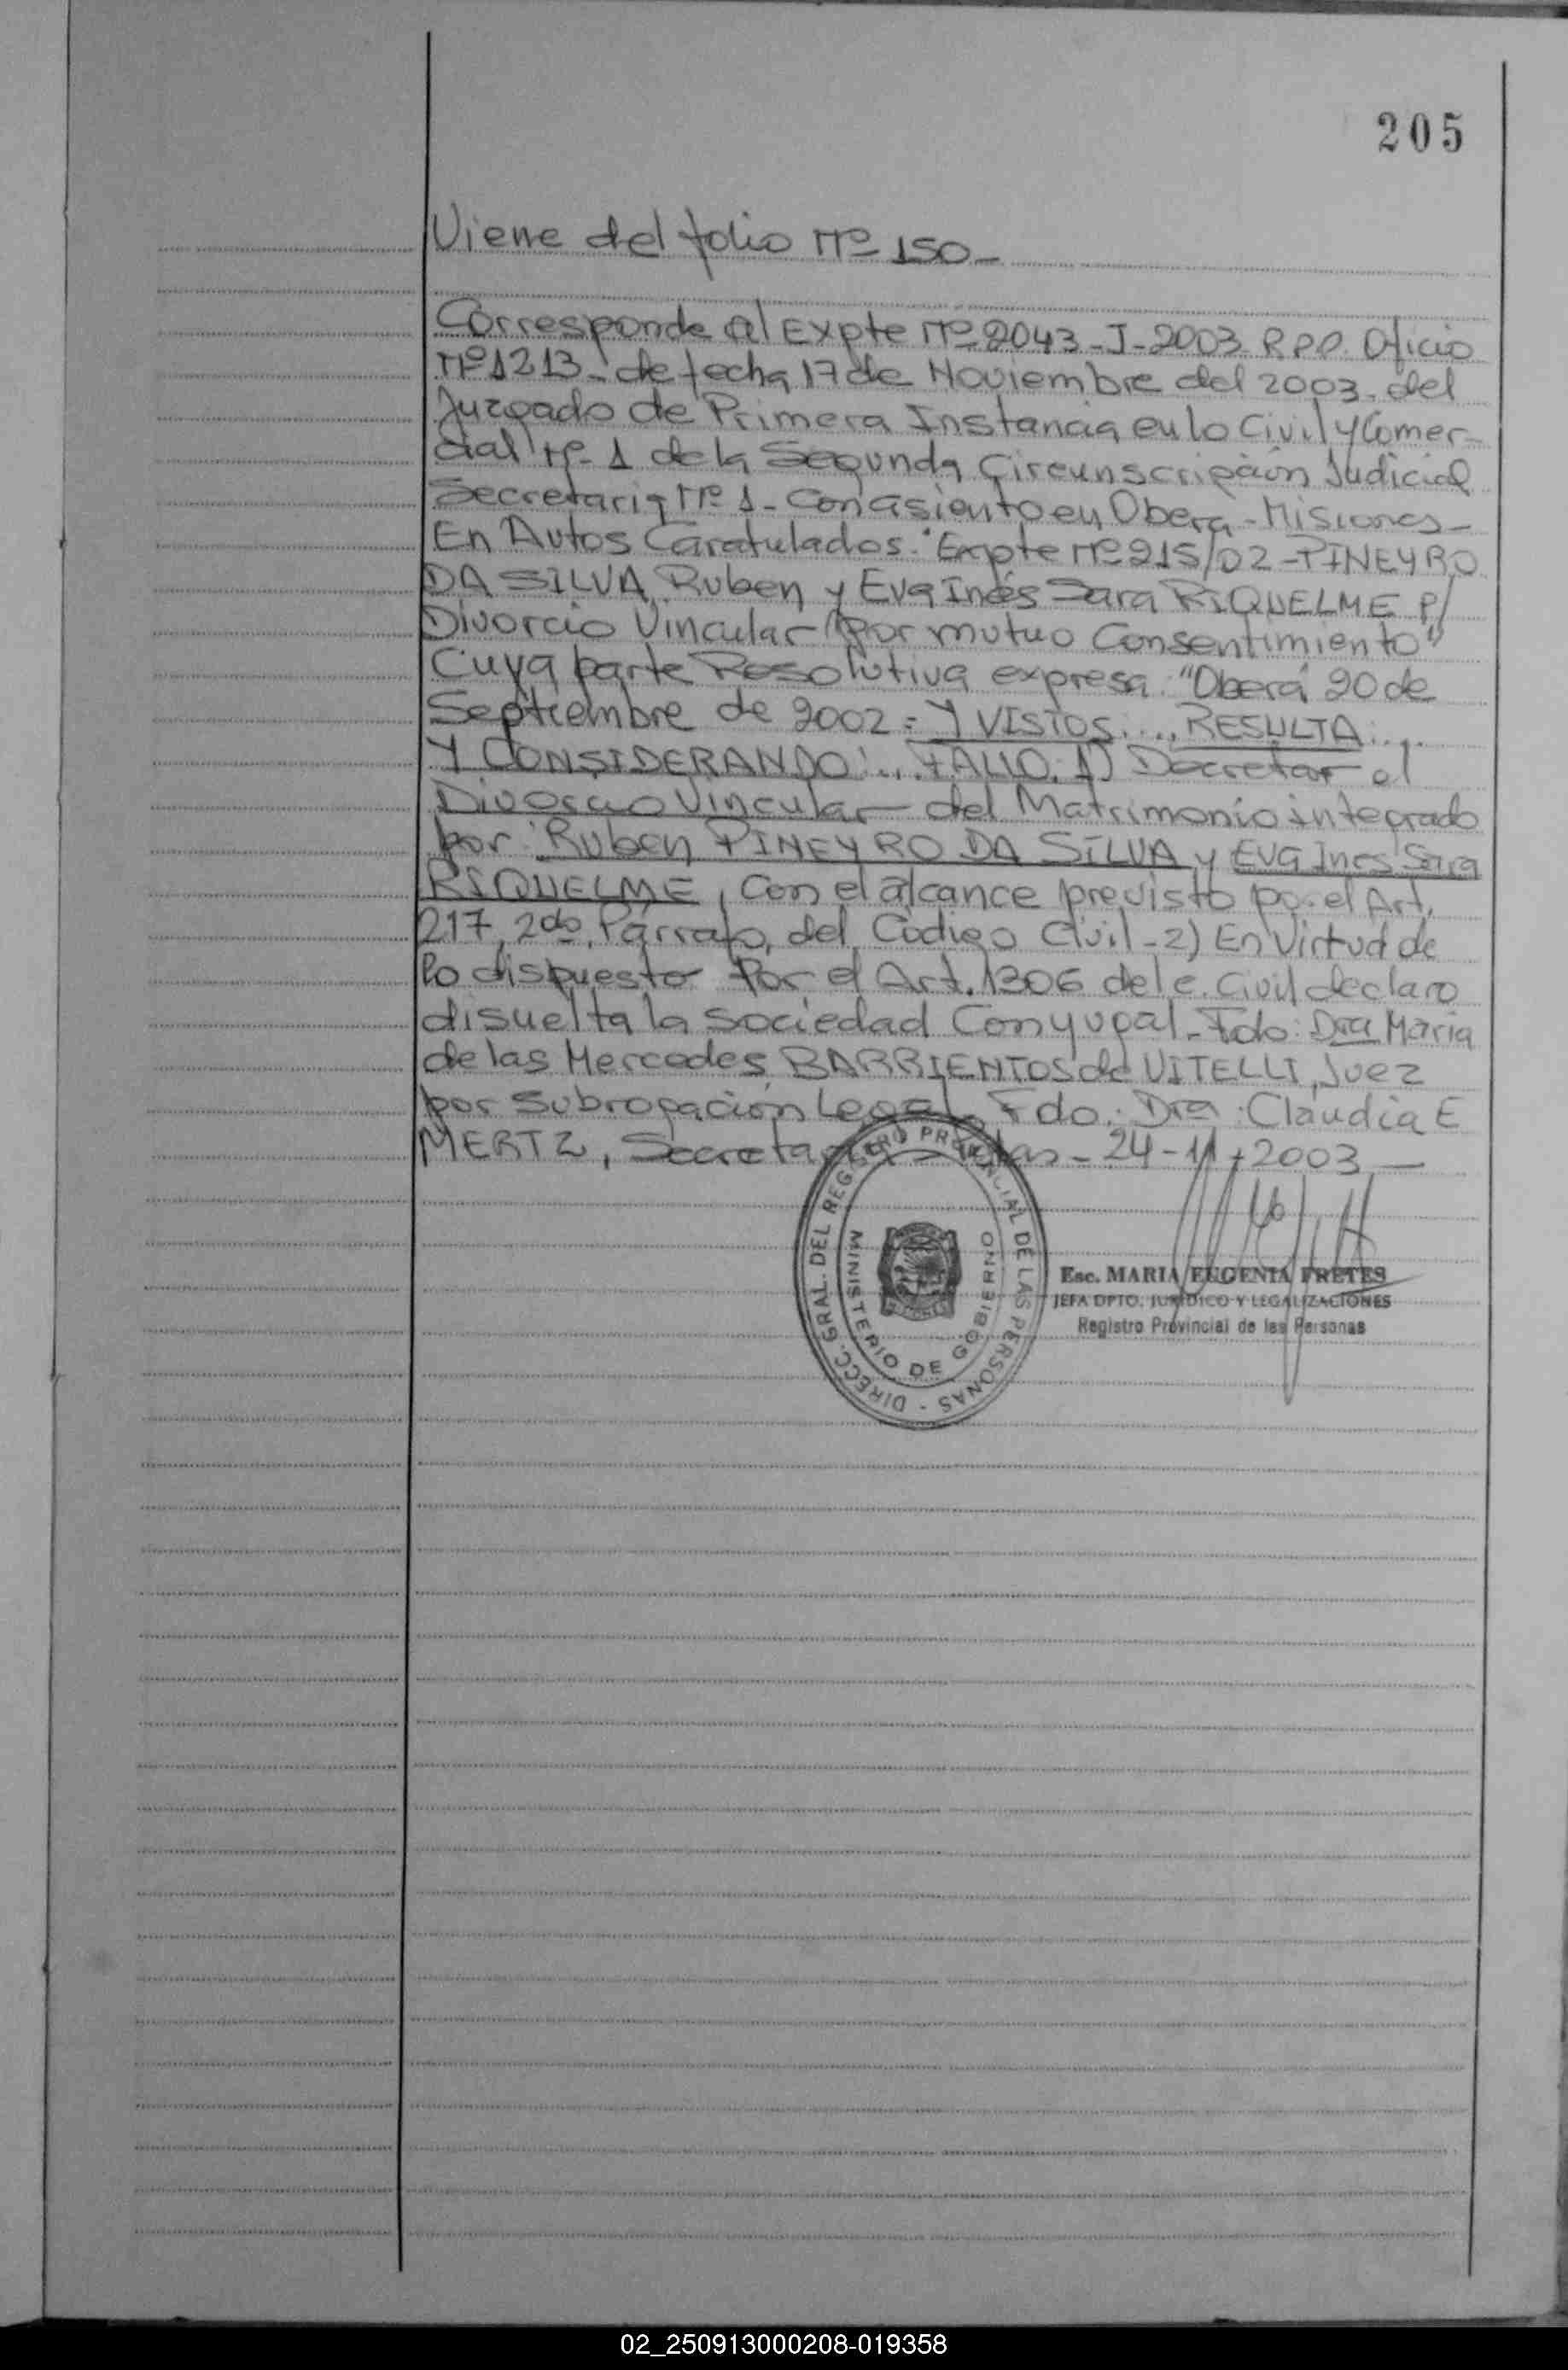 205
Viene del folio Nº 150_
Corresponde al Expte Nº 2043_J_2003 R.P.P. Oficio
Nº 1213_ de fecha 17 de Noviembre del 2003. del
Juzgado de Primera Instancia en lo Civil y Comer-
cial Nº 1 de la Segunda Circunscripción Judicial
Secretaria Nº 1_ Con asiento en Obera - Misiones_
En Autos Caratulados. "Expte Nº 215/02 - PINEYRO
DA SILVA, Ruben y Eva Inés Sara RIQUELME P/
Divorcio Vincular (por mutuo Consentimiento"
Cuya parte Resolutiva expresa: "Oberá 20 de
Septiembre de 2002 = Y VISTOS:..., RESULTA:...
Y CONSIDERANDO:... FALLO. 1) Decretar el
Divorcio Vincular del Matrimonio integrado
por: Ruben PINEYRO DA SILVA y Eva Ines Sara
RIQUELME, Con el alcance previsto por el Art.
217, 2do, Párrafo, del Codigo Civil_2) En Virtud de
lo dispuesto Por el Art. 1306 del C. Civil declaro
disuelta la Sociedad Conyugal_ Fdo: Dra Maria
de las Mercedes BARRIENTOS de VITELLI, Juez
por Subrogación Legal, Fdo: Dra: Claudia E
MERTZ, Secretaria - 24-11-2003_
DIRECC. GRAL. DEL REGISTRO PROVINCIAL DE LAS PERSONAS -
MINISTERIO DE GOBIERNO
Esc. MARIA EUGENIA FRETES
JEFA DPTO. JURIDICO Y LEGALIZACIONES
Registro Provincial de las Personas
02_250913000208-019358